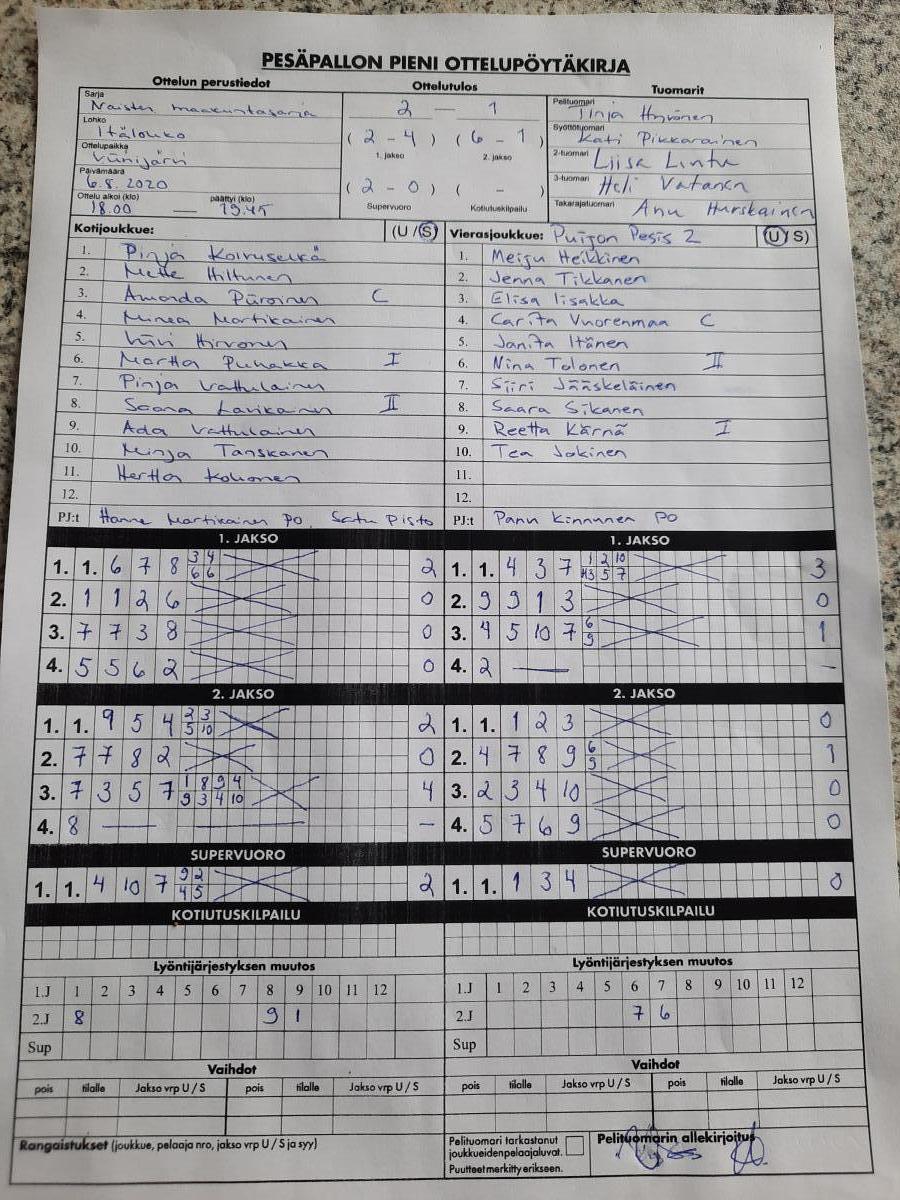 PESÄPALLON PIENI OTTELUPÖYTÄKIRJA
Ottelun perustiedot Ottelutulos Tuomarit
Sarja Naisten maakuntasarja
Lohko Itälohko
Ottelupaikka Viinijärvi
Päivämäärä 6.8. 2020
Ottelu alkoi (klo) päättyi (klo)
18.00 — 19.45
2 — 1
( 2 - 4 ) ( 6 - 1 )
1. jakso 2. jakso
( 2 - 0 ) ( - )
Supervuoro Kotiutuskilpailu
Pelituomari Tinja Hyvönen
Syöttötuomari Kati Pikkarainen
2-tuomari Liisa Lintu
3-tuomari Heli Vatanen
Takarajatuomari Anu Hurskainen
Kotijoukkue: (U / S)
1. Pinja Koivuselkä
2. Mette Hiltunen
3. Amanda Piiroinen C
4. Minea Martikainen
5. Viivi Hirvonen
6. Martta Puhakka I
7. Pinja Vattulainen
8. Saana Lavikainen II
9. Ada Vattulainen
10. Minja Tanskanen
11. Hertta Kohonen
12.
PJ:t Hanne Martikainen PO, Satu Pisto
Vierasjoukkue: Puijon Pesis 2 (U / S)
1. Meiju Heikkinen
2. Jenna Tikkanen
3. Elisa Iisakka
4. Carita Vuorenmaa C
5. Janita Itänen
6. Nina Tolonen II
7. Siiri Jääskeläinen
8. Saara Sikanen
9. Reetta Kärnä I
10. Tea Jokinen
11.
12.
PJ:t Panu Kinnunen PO
1. JAKSO
3 4
1. 1. 6 7 8 2
6 6
2. 1 1 2 6 0
3. 7 7 3 8 0
4. 5 5 6 2 0
1. JAKSO
1 2 10
1. 1. 4 3 7 3
3 5 7
2. 9 9 1 3 0
6
3. 4 5 10 7 1
9
4. 2 — —
2. JAKSO
2 3
1. 1. 9 5 4 2
5 10
2. 7 7 8 2 0
1 8 9 4
3. 7 3 5 7 4
9 3 4 10
4. 8 — — —
2. JAKSO
1. 1. 1 2 3 0
6
2. 4 7 8 9 1
9
3. 2 3 4 10 0
4. 5 7 6 9 0
SUPERVUORO
9 2
1. 1. 4 10 7 2
4 5
SUPERVUORO
1. 1. 1 3 4 0
KOTIUTUSKILPAILU
KOTIUTUSKILPAILU
Lyöntijärjestyksen muutos
1.J 1 2 3 4 5 6 7 8 9 10 11 12
2.J 8 9 1
Sup
Lyöntijärjestyksen muutos
1.J 1 2 3 4 5 6 7 8 9 10 11 12
2.J 7 6
Sup
Vaihdot
pois tilalle Jakso vrp U / S pois tilalle Jakso vrp U / S
Vaihdot
pois tilalle Jakso vrp U / S pois tilalle Jakso vrp U / S
Rangaistukset (joukkue, pelaaja nro, jakso vrp U / S ja syy)
Pelituomari tarkastanut
joukkueidenpelaajaluvat.
Puutteet merkitty erikseen.
Pelituomarin allekirjoitus